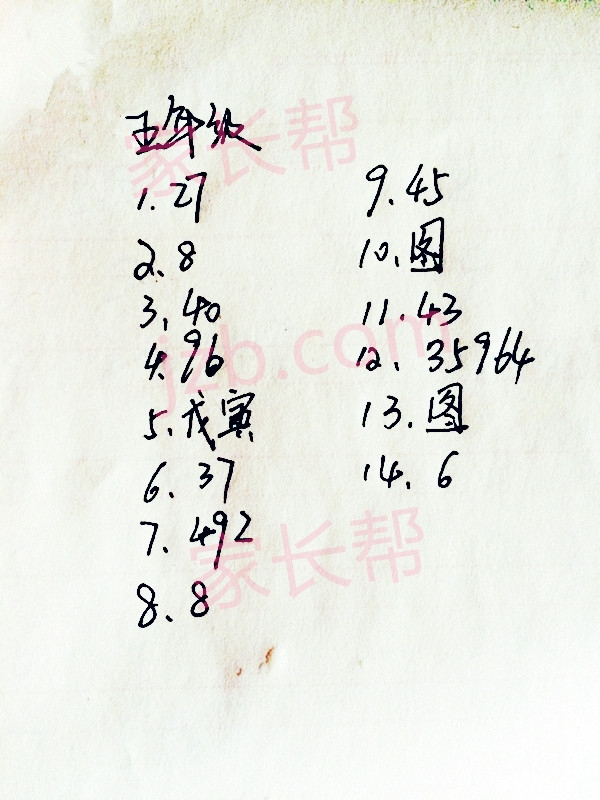 五年级
1.27
2.8
3.40
4.96
5.戊寅
6.37
7.492
8.8
9.45
10.图
11.43
12.35964
13.图
14.6
家长帮
jzb.com
家长帮